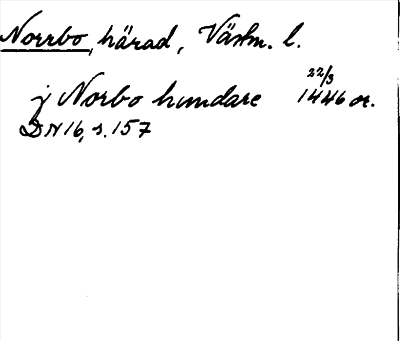 Norrbo, härad, Västm. l.
j Norbo hundare 22/3 1446 or.
DN 16, s. 157